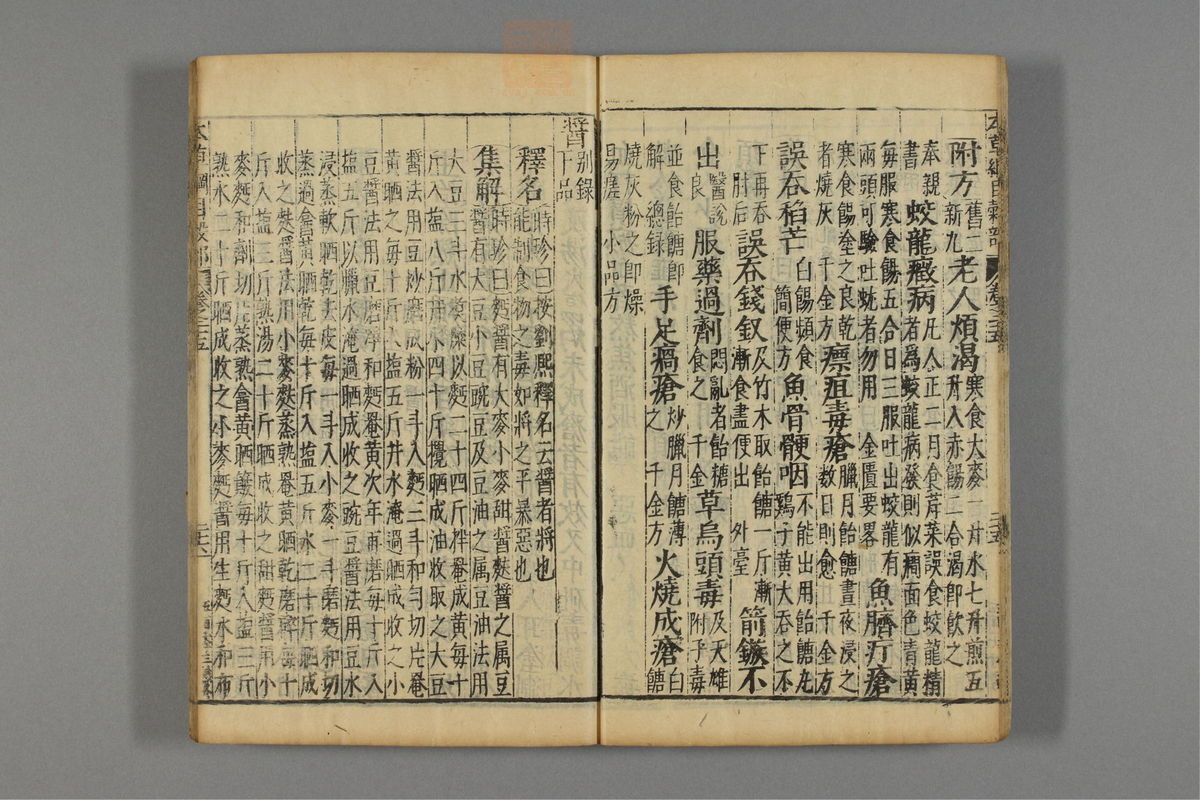 本草綱目穀部 卷二十五
附方舊二新九 老人煩渴寒食大麥一升水七升煎五升入赤餳二合渴即飲之
奉親書 蛟龍癥病凡人正二月食芹菜誤食蛟龍精者為蛟龍病發則似癇面色青黃
每服寒食餳五合日三服吐出蛟龍有兩頭可驗吐蚘者勿用 金匱要畧 魚臍疔瘡
寒食餳塗之良乾者燒灰 千金方 瘭疽毒瘡臘月飴餹晝夜浸之數日則愈 千金方
誤吞稻芒白餳頻食 簡便方 魚骨骾咽不能出用飴餹丸雞子黃大吞之不
下再吞 肘后 誤吞錢釵及竹木取飴餹一斤漸漸食盡便出 外臺 箭鏃不
出 服藥過劑悶亂者飴糖食之 千金 草烏頭毒及天雄附子毒
並食飴餹即解 總錄 手足瘑瘡炒臘月餹薄之 千金方 火燒成瘡白餹
燒灰粉之即燥易瘥 小品方
醬別錄下品
釋名時珍曰按劉熙釋名云醬者將也能制食物之毒如將之平暴惡也
集解時珍曰麪醬有大麥小麥甜醬麩醬之属豆醬有大豆小豆豌豆及豆油之属豆油法用
大豆三斗水煮糜以麪二十四斤拌罨成黃每十斤入塩八斤井水四十斤攪晒成油收取之大豆
醬法用豆炒磨成粉一斗入麪三斗和勻切片罨黃晒之每十斤入塩五斤井水淹過晒成收之小
豆醬法用豆磨淨和麪罨黃次年再磨每十斤入塩五斤以臘水淹過晒成收之豌豆醬法用豆水
浸蒸軟晒乾去皮每一斗入小麥一斗磨麪和切蒸過盦黃晒乾每十斤入塩五斤水二十斤晒成
收之麩醬法用小麥麩蒸熟罨黃晒乾磨碎每十斤入塩三斤熟湯二十斤晒成收之甜麪醬用小
麥麪和劑切片蒸熟盦黃晒簸每十斤入塩三斤熟水二十斤晒成收之小麥麪醬用生麪水和布
本草綱目穀部 卷二十五